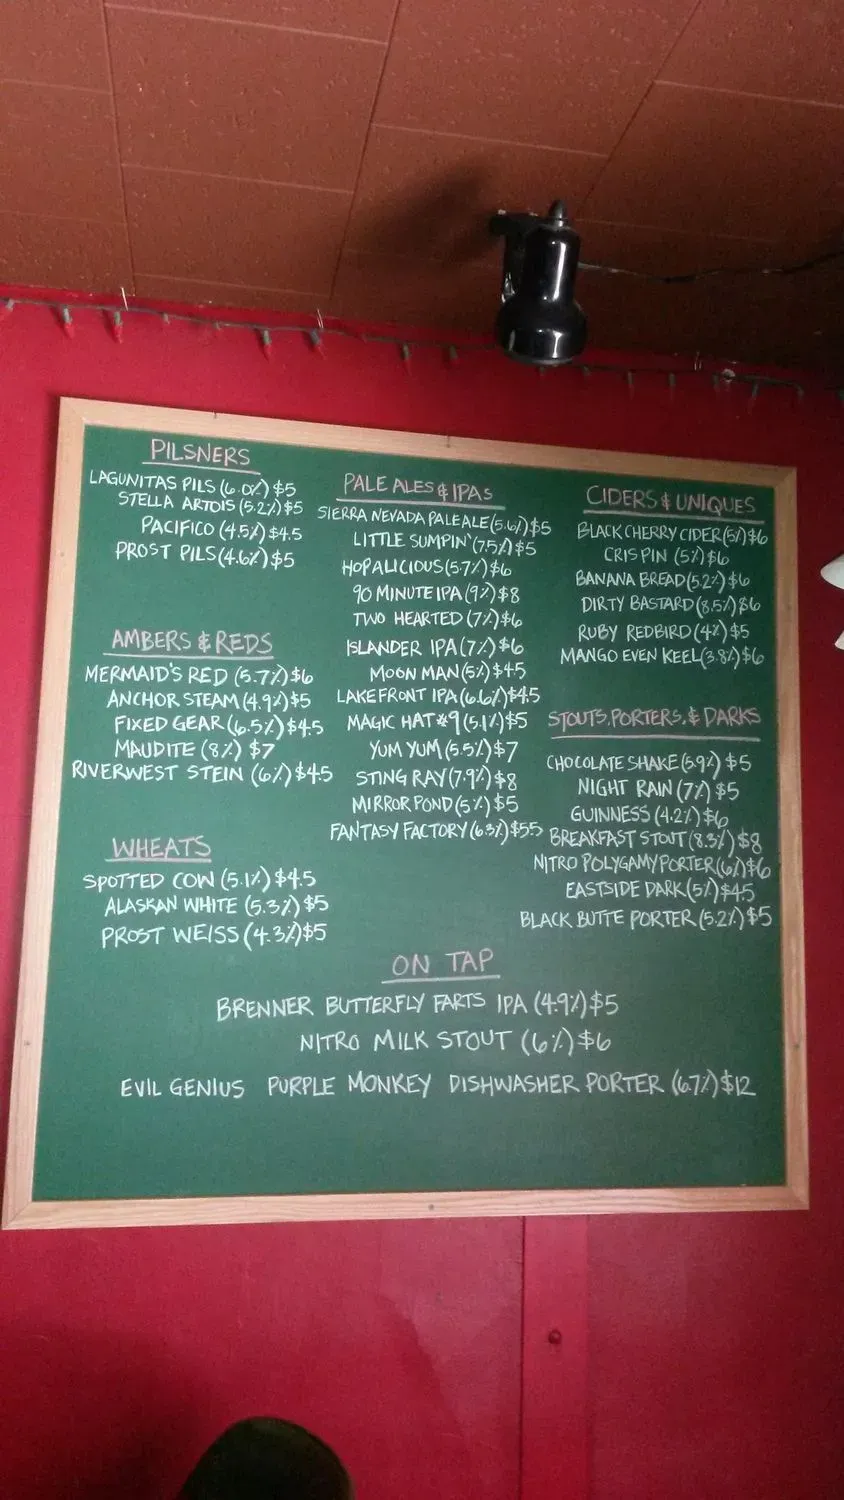 PILSNERS
LAGUNITAS PILS (6.0%) $5
STELLA ARTOIS (5.2%) $5
PACIFICO (4.5%) $4.5
PROST PILS (4.6%) $5
AMBERS & REDS
MERMAID'S RED (5.7%) $6
ANCHOR STEAM (4.9%) $5
FIXED GEAR (6.5%) $4.5
MAUDITE (8%) $7
RIVERWEST STEIN (6%) $4.5
WHEATS
SPOTTED COW (5.1%) $4.5
ALASKAN WHITE (5.3%) $5
PROST WEISS (4.3%) $5
PALE ALES & IPAS
SIERRA NEVADA PALE ALE (5.6%) $5
LITTLE SUMPIN' (7.5%) $5
HOPALICIOUS (5.7%) $6
90 MINUTE IPA (9%) $8
TWO HEARTED (7%) $6
ISLANDER IPA (7%) $6
MOON MAN (5%) $4.5
LAKEFRONT IPA (6.6%) $4.5
MAGIC HAT #9 (5.1%) $5
YUM YUM (5.5%) $7
STING RAY (7.9%) $8
MIRROR POND (5%) $5
FANTASY FACTORY (6.3%) $5.5
CIDERS & UNIQUES
BLACK CHERRY CIDER (5%) $6
CRISPIN (5%) $6
BANANA BREAD (5.2%) $6
DIRTY BASTARD (8.5%) $6
RUBY REDBIRD (4%) $5
MANGO EVEN KEEL (3.8%) $6
STOUTS, PORTERS, & DARKS
CHOCOLATE SHAKE (5.9%) $5
NIGHT RAIN (7%) $5
GUINNESS (4.2%) $6
BREAKFAST STOUT (8.3%) $8
NITRO POLYGAMY PORTER (6%) $6
EASTSIDE DARK (5%) $4.5
BLACK BUTTE PORTER (5.2%) $5
ON TAP
BRENNER BUTTERFLY FARTS IPA (4.9%) $5
NITRO MILK STOUT (6%) $6
EVIL GENIUS PURPLE MONKEY DISHWASHER PORTER (6.7%) $12